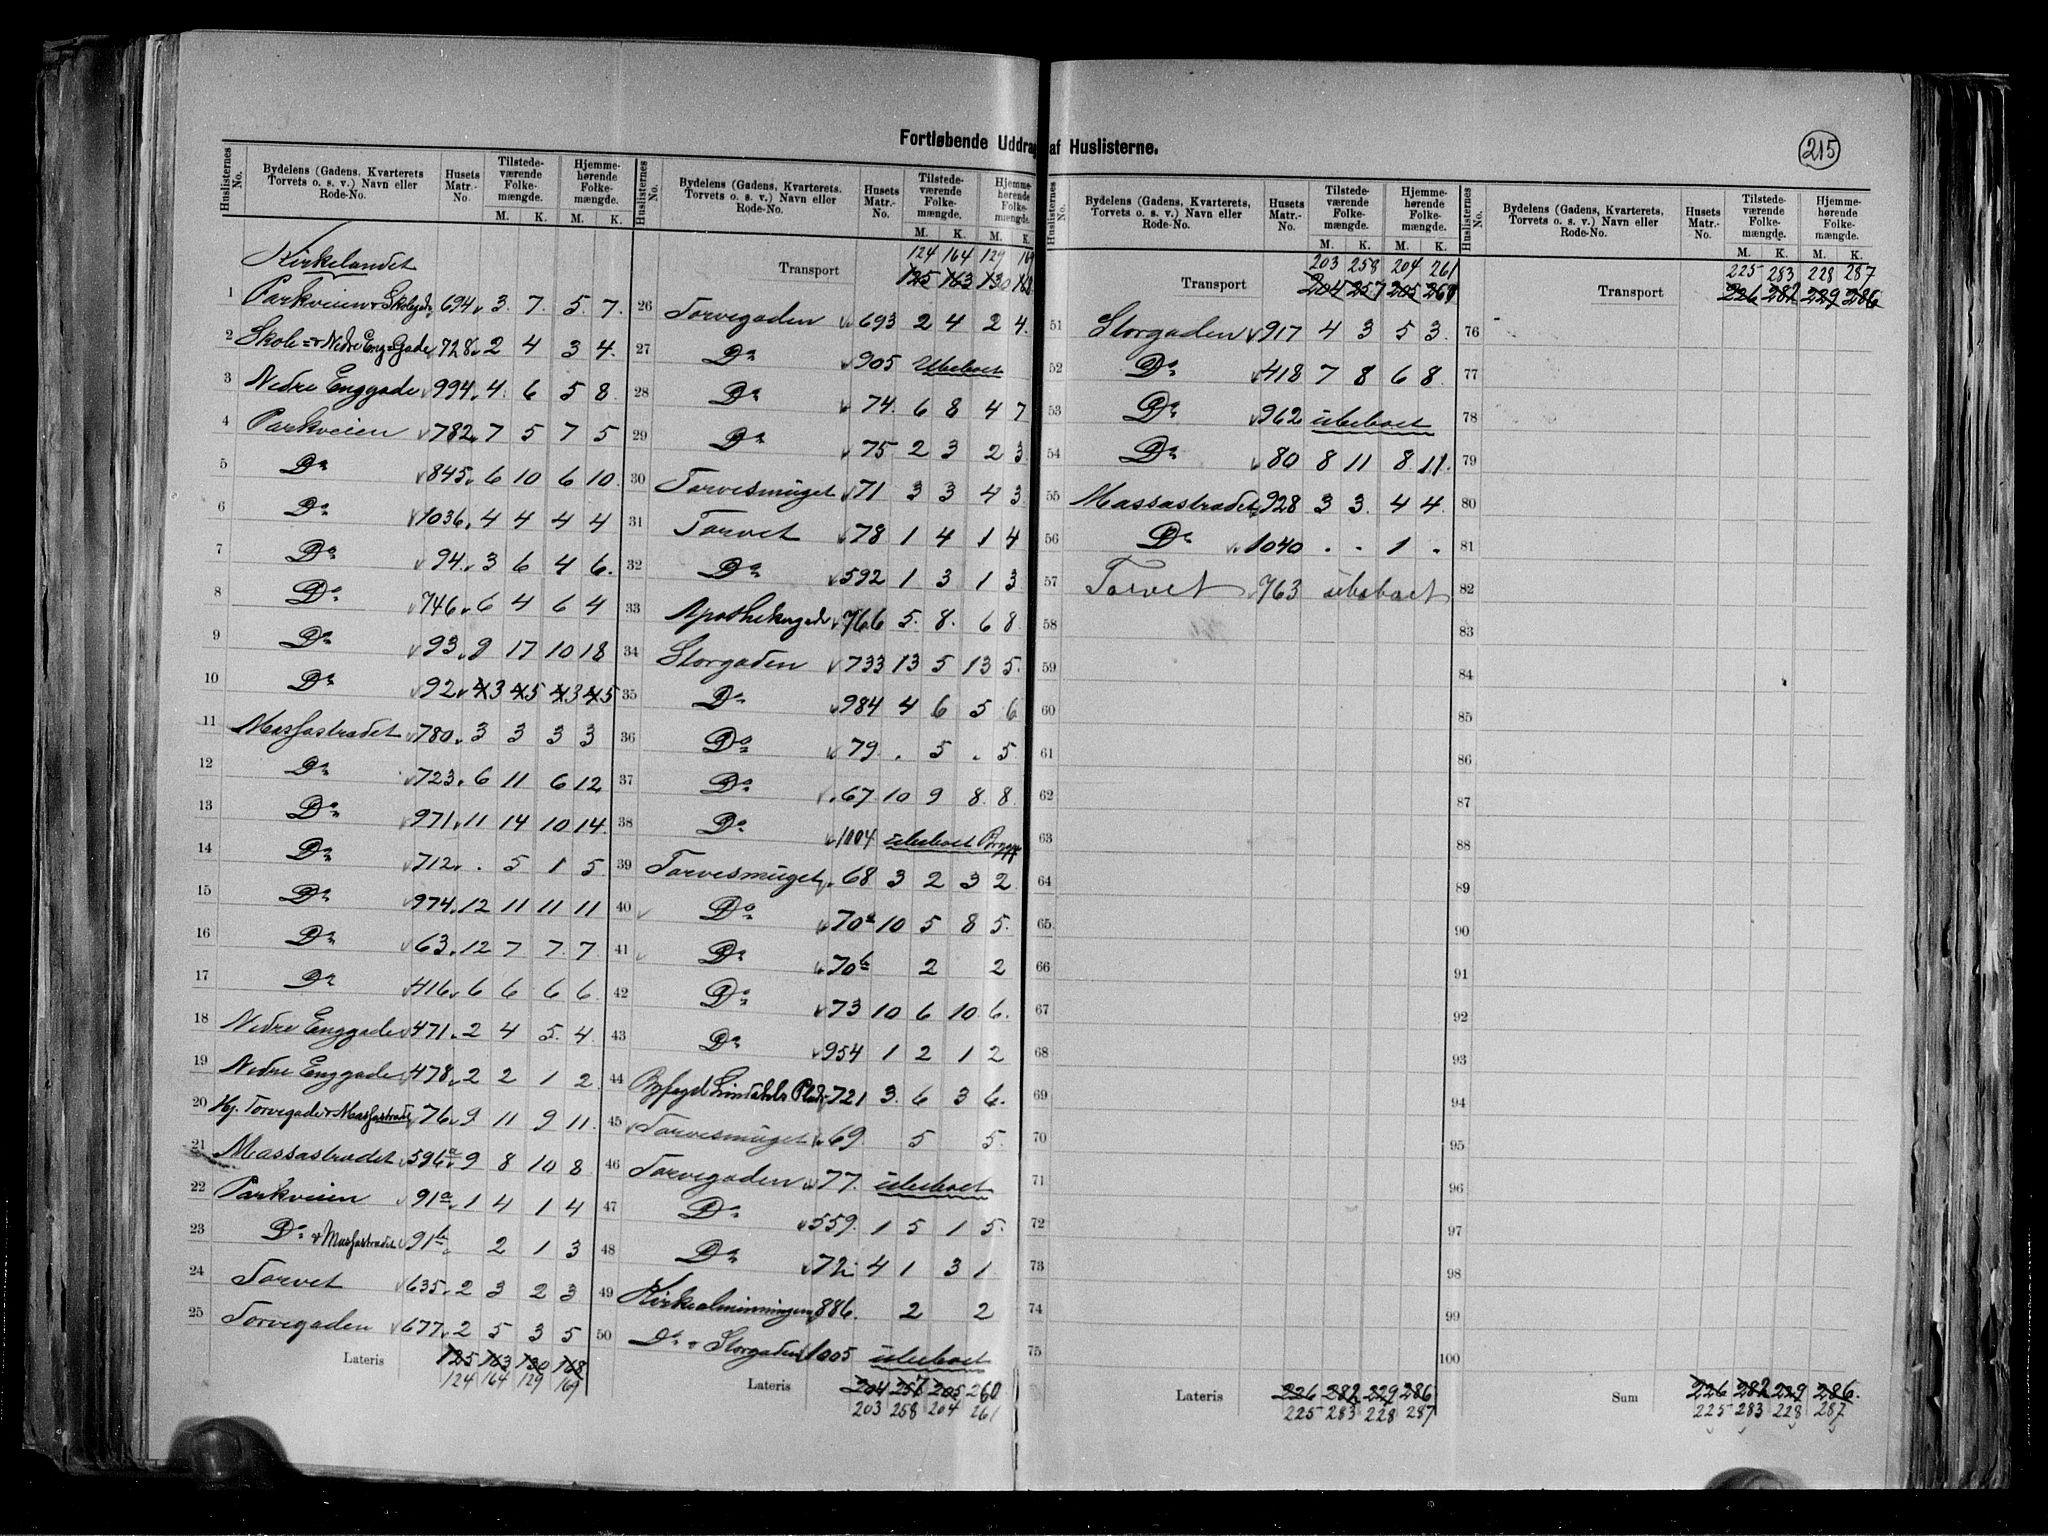 Fortløbende Uddrag af Huslisterne.
215
Huslisternes No. Bydelens (Gadens, Kvarterets Torvets o. s. v.) Navn eller Rode-No. Husets Matr.-No Tilstedeværende Folkemængde. M. K. Hjemmehørende Folkemængde. M. K.
Kirkelandet
1 Parkveien v Skolegd. 694 3 7 5 7
2 Skole= v Nedre Eng=Gade 728 2 4 3 4
3 Nedre Enggade 994 4 6 5 8
4 Parkveien 782 7 5 7 5
5 Do 845 6 10 6 10
6 Do 1036 4 4 4 4
7 Do 94 3 6 4 6
8 Do 746 6 4 6 4
9 Do 93 9 17 10 18
10 Do 92 4 3 4 5 4 3 4 5
11 Massastrædet 780 3 3 3 3
12 Do 723 6 11 6 12
13 Do 971 11 14 10 14
14 Do 712 . 5 1 5
15 Do 974 12 11 11 11
16 Do 63 12 7 7 7
17 Do 416 6 6 6 6
18 Nedre Enggade 471 2 4 5 4
19 Nedre Enggade 478 2 2 1 2
20 Hj. Torvegade v Massastrædet 76 9 11 9 11
21 Massastrædet 596a 9 8 10 8
22 Parkveien 91a 1 4 1 4
23 Do v Massastrædet 91b 2 1 3
24 Torvet 635 2 3 2 3
25 Torvegaden 677 2 5 3 5
Lateris 125 163 130 168
124 164 129 169
Huslisternes No. Bydelens (Gadens, Kvarterets, Torvets o. s. v.) Navn eller Rode-No. Husets Matr.-No. Tilstedeværende Folkemængde. M. K. Hjemmehørende Folkemængde. M. K.
124 164 129 169
Transport 125 163 130 168
26 Torvegaden 693 2 4 2 4
27 Do 905 Ubeboet
28 Do 74 6 8 4 7
29 Do 75 2 3 2 3
30 Torvesmuget 71 3 3 4 3
31 Torvet 78 1 4 1 4
32 Do 592 1 3 1 3
33 Apothekergade 766 5 8 6 8
34 Storgaden 733 13 5 13 5
35 Do 984 4 6 5 6
36 Do 79 . 5 . 5
37 Do 67 10 9 8 8
38 Do 1004 ubeboet Brygge
39 Torvesmuget 68 3 2 3 2
40 Do 70a 10 5 8 5
41 Do 70b 2 2
42 Do 73 10 6 10 6
43 Do 954 1 2 1 2
44 Byfogd Lindahls Plads 721 3 6 3 6
45 Torvesmuget 69 5 5
46 Torvegaden 77 ubeboet
47 Do 559 1 5 1 5
48 Do 72 4 1 3 1
49 Kirkealminningen 886 2 2
50 Do v Storgaden 1005 ubeboet
Lateris 204 257 205 260
203 258 204 261
Huslisternes No. Bydelens (Gadens, Kvarterets, Torvets o. s. v.) Navn eller Rode-No. Husets Matr.-No. Tilstedeværende Folkemængde. M. K. Hjemmehørende Folkemængde. M. K.
203 258 204 261
Transport 204 257 205 260
51 Storgaden 917 4 3 5 3
52 Do 418 7 8 6 8
53 Do 962 ubeboet
54 Do 80 8 11 8 11
55 Massastrædet 928 3 3 4 4
56 Do 1040 . . 1 .
57 Torvet 763 ubeboet
58
59
60
61
62
63
64
65
66
67
68
69
70
71
72
73
74
75
Lateris 226 282 229 286
225 283 228 287
Huslisternes No. Bydelens (Gadens, Kvarterets, Torvets o. s. v.) Navn eller Rode-No. Husets Matr.-No. Tilstedeværende Folkemængde. M. K. Hjemmehørende Folkemængde. M. K.
225 283 228 287
Transport 226 282 229 286
76
77
78
79
80
81
82
83
84
85
86
87
88
89
90
91
92
93
94
95
96
97
98
99
100
Sum 226 282 229 286
225 283 228 287